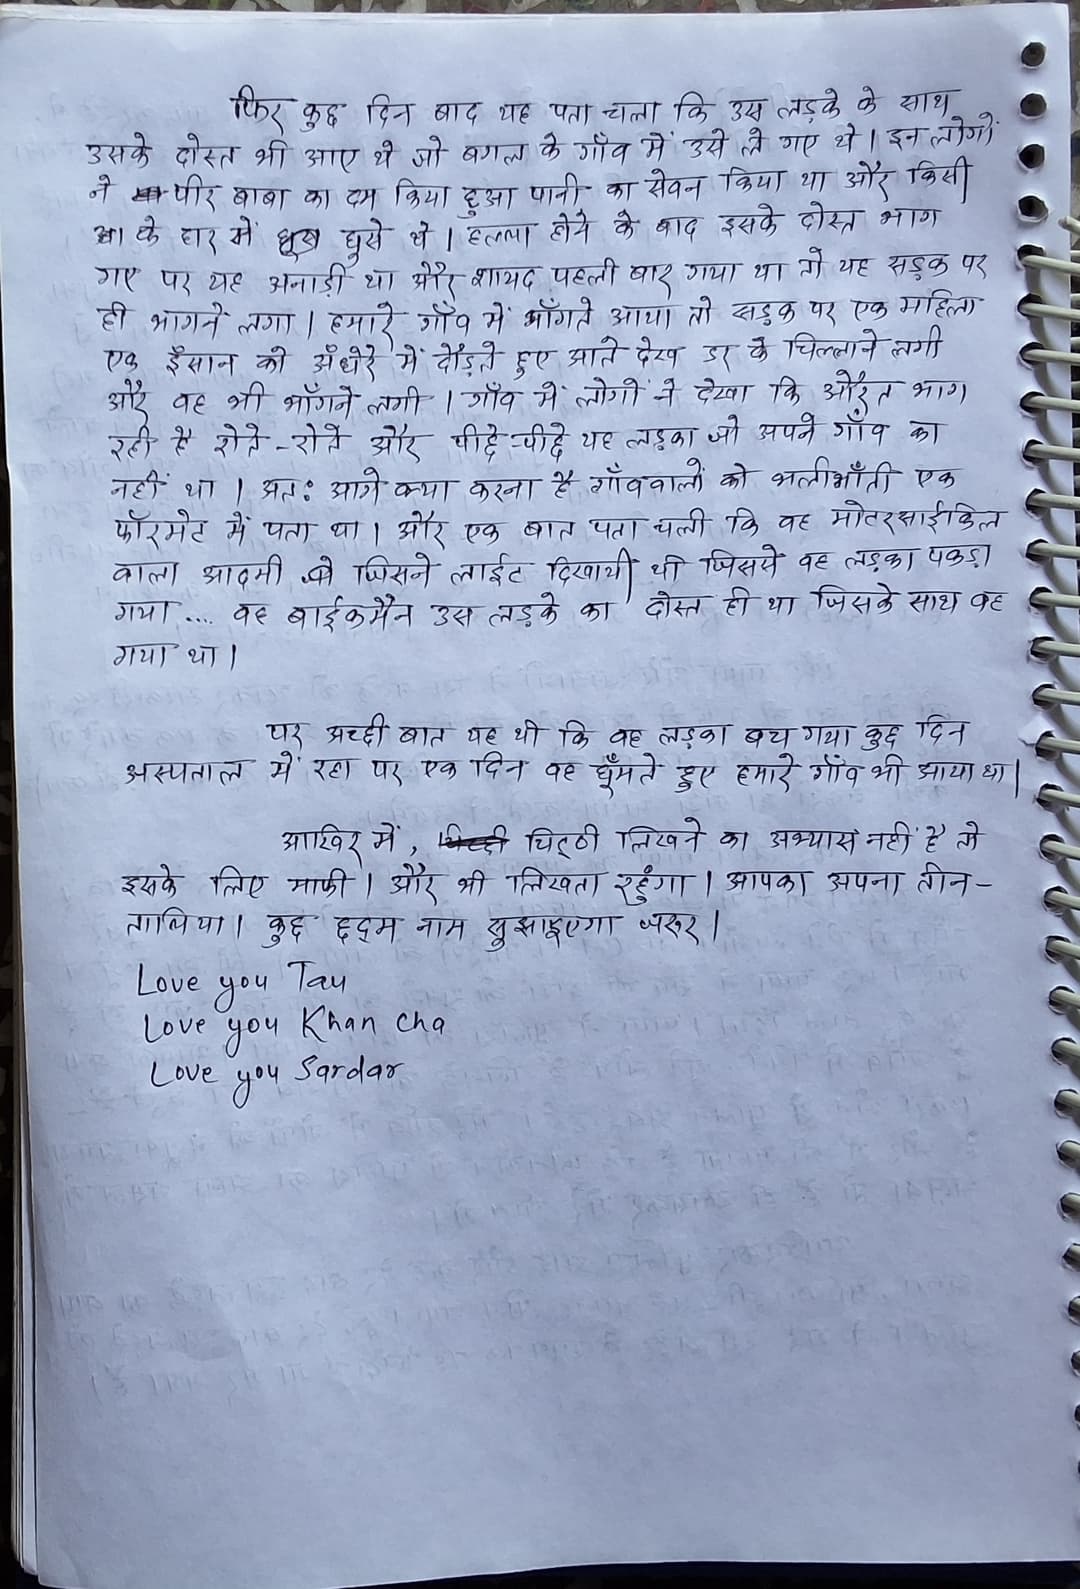 फिर कुछ दिन बाद यह पता चला कि उस लड़के के साथ
उसके दोस्त भी आए थे जो बगल के गाँव में उसे ले गए थे। इन लोगों
ने पीर बाबा का दम किया हुआ पानी का सेवन किया था और किसी
के घर में घुसे थे। हल्ला होने के बाद इसके दोस्त भाग
गए पर यह अनाड़ी था और शायद पहली बार गया था तो यह सड़क पर
ही भागने लगा। हमारे गाँव में भाँगते आया तो सड़क पर एक महिला
एक इँसान को अँधेरे में दौड़ते हुए आते देख डर के चिल्लाने लगी
और वह भी भाँगने लगी। गाँव में लोगों ने देखा कि औरत भाग
रही है रोते-रोते और पीछे-पीछे यह लड़का जो अपने गाँव का
नहीं था। अतः आगे क्या करना है गाँववालों को भलीभाँती एक
फॉरमेट में पता था। और एक बात पता चली कि वह मोटरसाईकिल
वाला आदमी जिसने लाईट दिखायी थी जिससे वह लड़का पकड़ा
गया .... वह बाईकमैन उस लड़के का दोस्त ही था जिसके साथ वह
गया था।
पर अच्छी बात यह थी कि वह लड़का बच गया कुछ दिन
अस्पताल में रहा पर एक दिन वह घूँमते हुए हमारे गाँव भी आया था।
आखिर में, चिट्ठी लिखने का अभ्यास नहीं है तो
इसके लिए माफी। और भी लिखता रहुंगा। आपका अपना तीन-
तालिया। कुछ छद्म नाम सुझाइएगा जरूर।
Love you Tau
Love you Khan cha
Love you Sardar